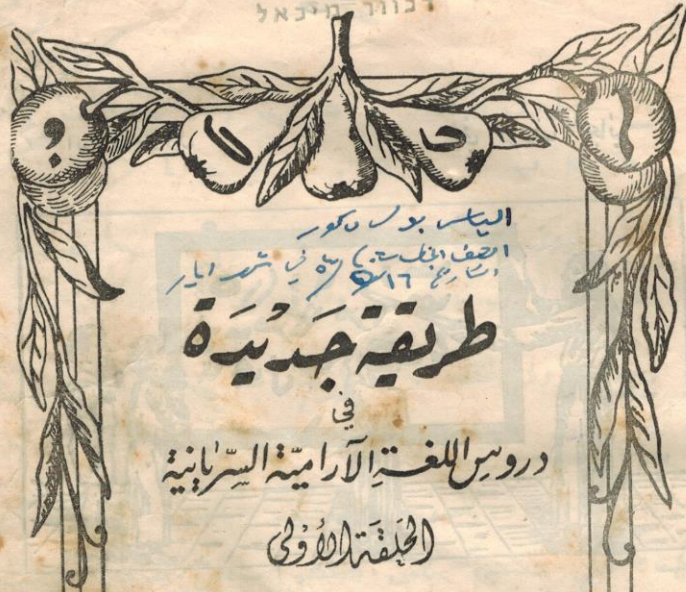 מיכאל
الياس بولس دكور
الصف
في شهر ايار
طريقة جَديدَة
في
دروس اللغة الآراميّة السّريانية
الحَلقَة الأولى